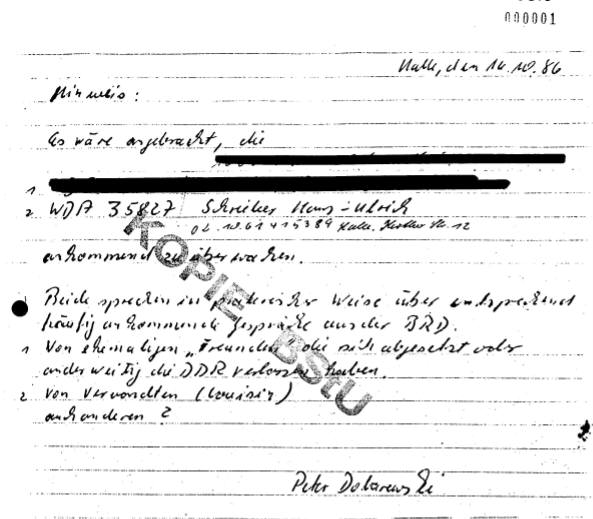 000001
Halle, den 16.10.86
Hinweis:
Es wäre angebracht, die
1
2 WDA 35827 Schreiber Hans-Ulrich
02 10 61 415389 Halle,
ankommend zu überwachen.
Beide sprechen in Weise über entsprechend
häufig ankommende Gespräche aus der BRD.
1 Von ehemaligen „Freunden" die sich abgesetzt oder
anderweitig die DDR verlassen haben.
2 Von Verwandten
anderen ?
Peter
KOPIE BStU